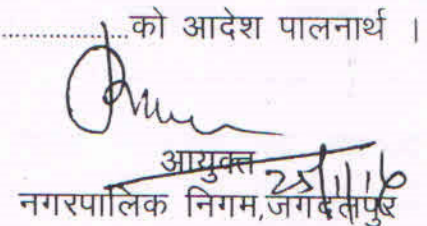 ...................... को आदेश पालनार्थ ।
आयुक्त
25/11/16
नगरपालिक निगम, जगदलपुर